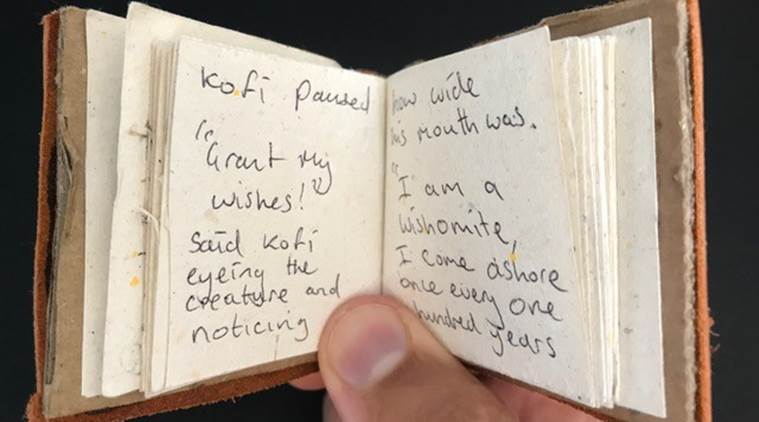 Kofi paused
"Grant my
wishes!"
Said Kofi
eyeing the
creature and
noticing
how wide
his mouth was.
"I am a
Wishomite,
I come ashore
once every one
hundred years